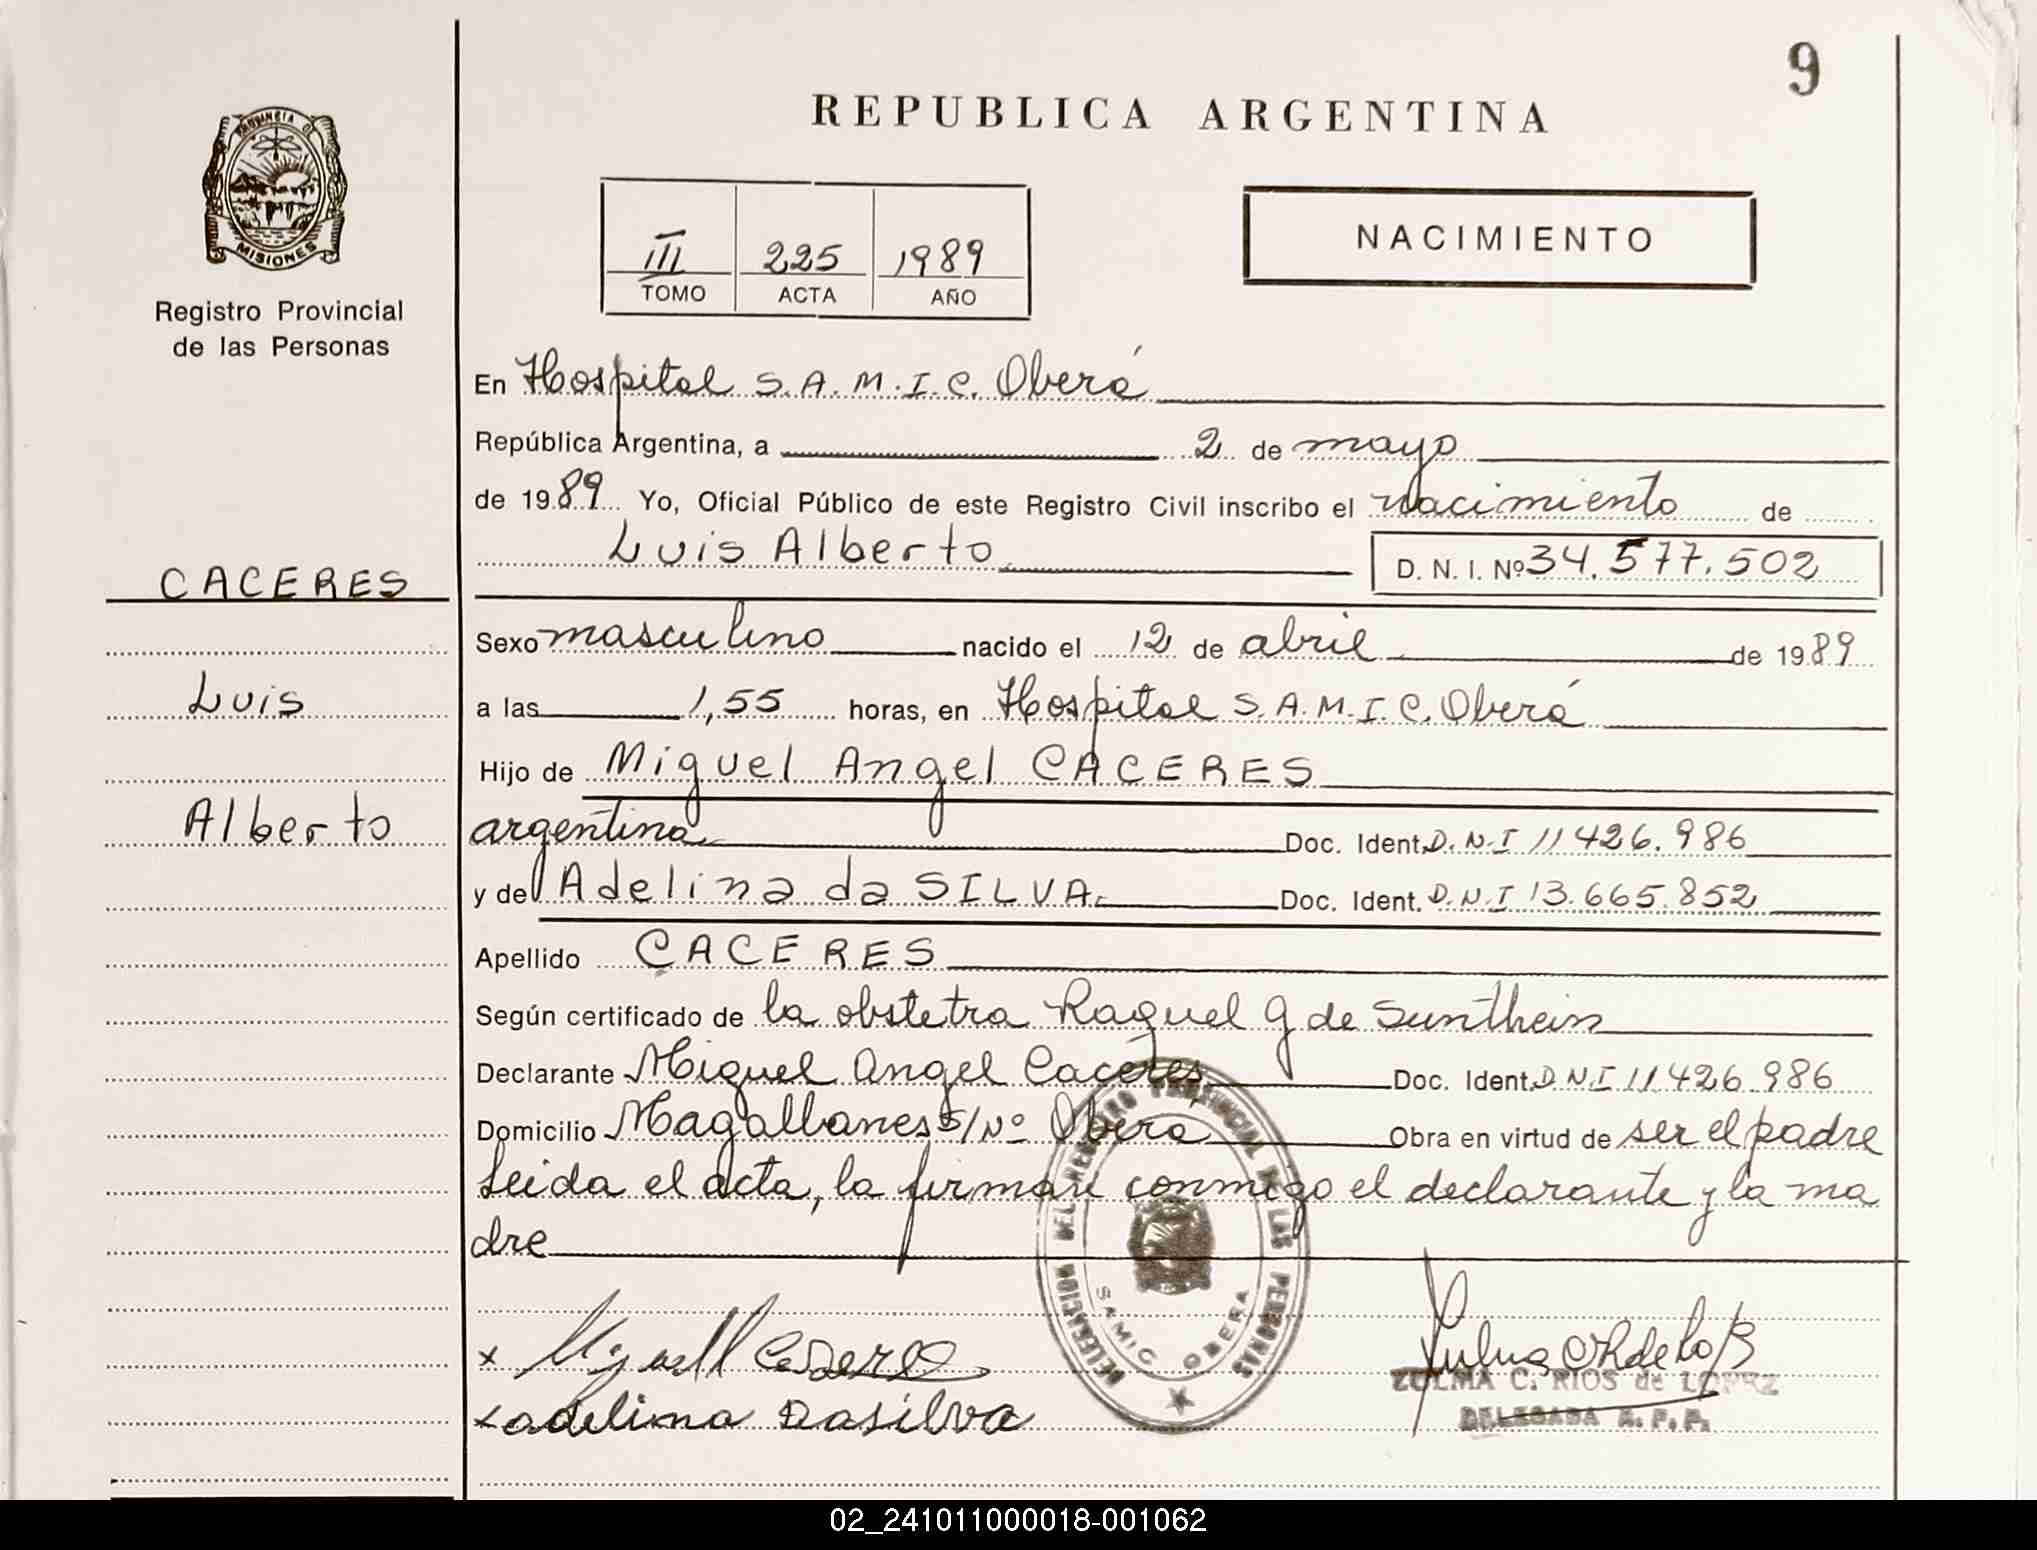 9
REPUBLICA ARGENTINA
PROVINCIA D
MISIONES
Registro Provincial
de las Personas
III 225 1989
TOMO ACTA AÑO
NACIMIENTO
En Hospital S.A.M.I.C. Oberá
República Argentina, a 2 de mayo
de 1989 Yo, Oficial Público de este Registro Civil inscribo el nacimiento de
Luis Alberto D. N. I. Nº 34.577.502
CACERES
Sexo masculino nacido el 12 de abril de 1989
Luis
a las 1,55 horas, en Hospital S.A.M.I.C. Oberá
Hijo de Miguel Angel CACERES
Alberto
argentina Doc. Ident. D.N.I 11426.986
y de Adelina da SILVA Doc. Ident. D.N.I 13.665.852
Apellido CACERES
Según certificado de la obstetra Raquel G de Sunthein
Declarante Miguel Angel Caceres Doc. Ident. D N I 11426.986
Domicilio Magallanes S/Nº Oberá Obra en virtud de ser el padre
Leida el acta, la firman conmigo el declarante y la ma
dre
DELEGACION DEL REGISTRO PROVINCIAL DE LAS PERSONAS
SAMIC OBERA
x Miguel Caceres
x adelina Dasilva
ZULMA C. RIOS de LOPEZ
DELEGADA R. P. P.
02_241011000018-001062